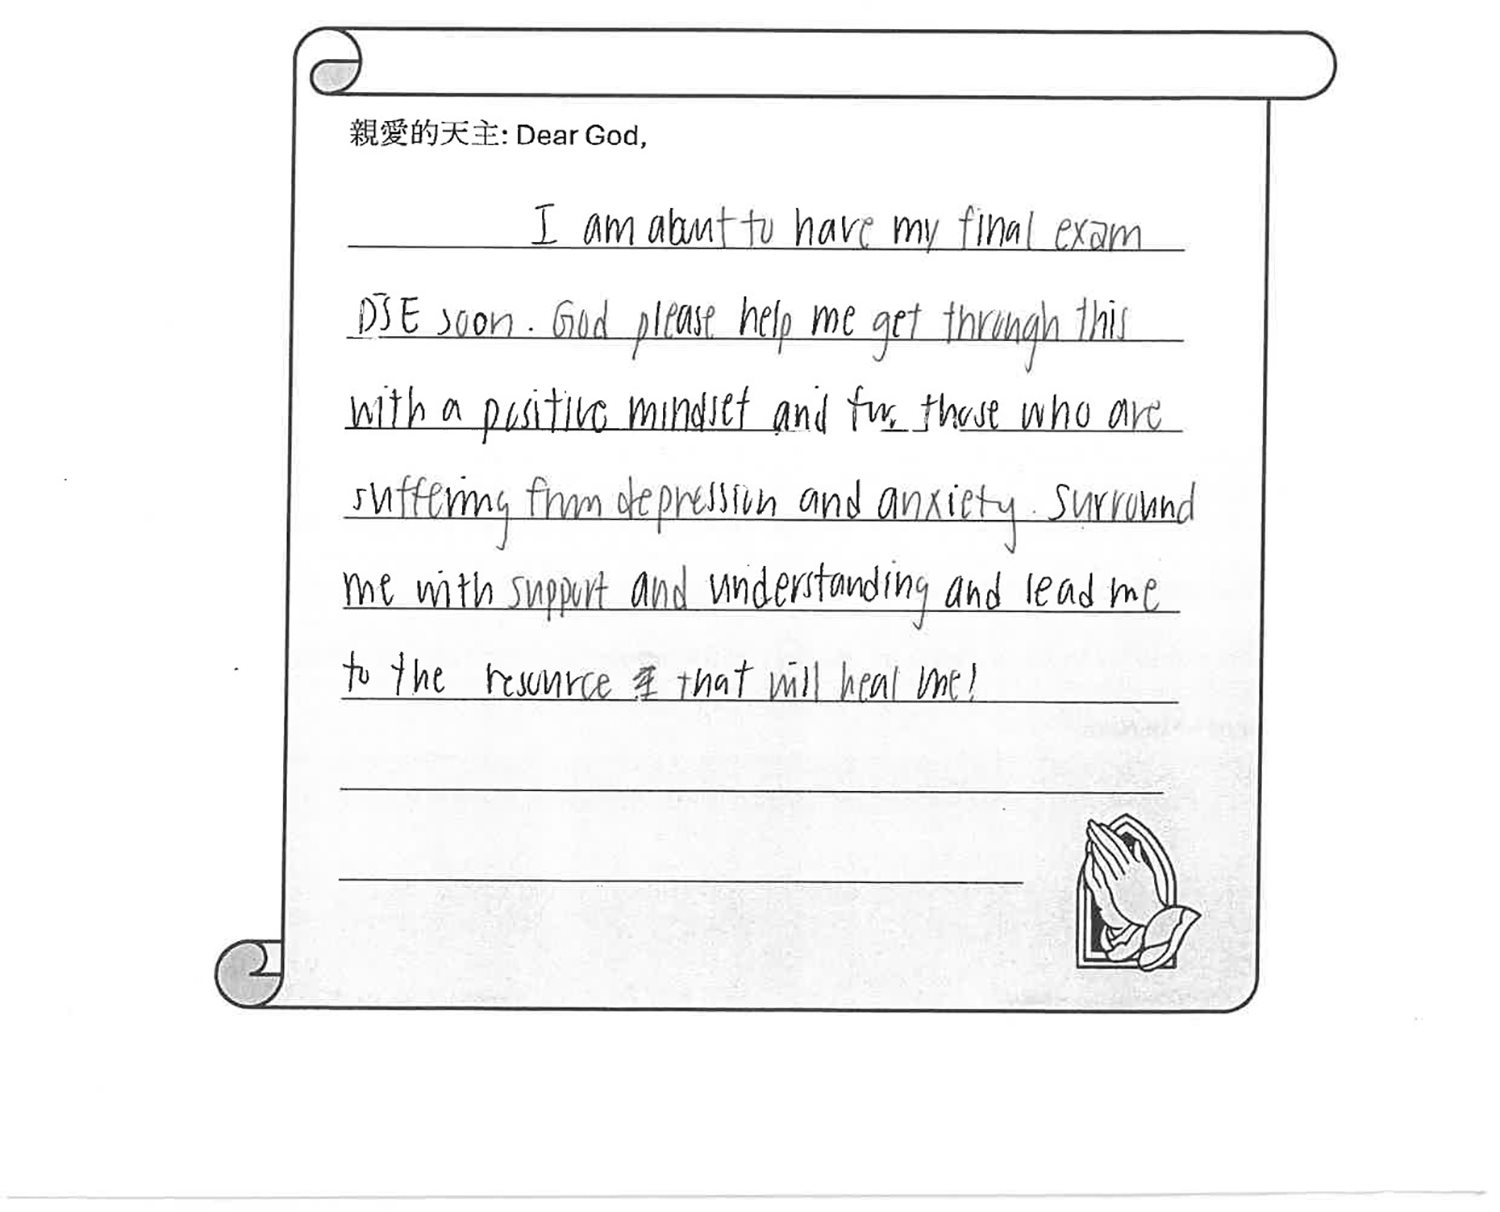 親愛的天主: Dear God,
I am about to have my final exam
DSE soon. God please help me get through this
with a positive mindset and for those who are
suffering from depression and anxiety. Surround
me with support and understanding and lead me
to the resource that will heal me!